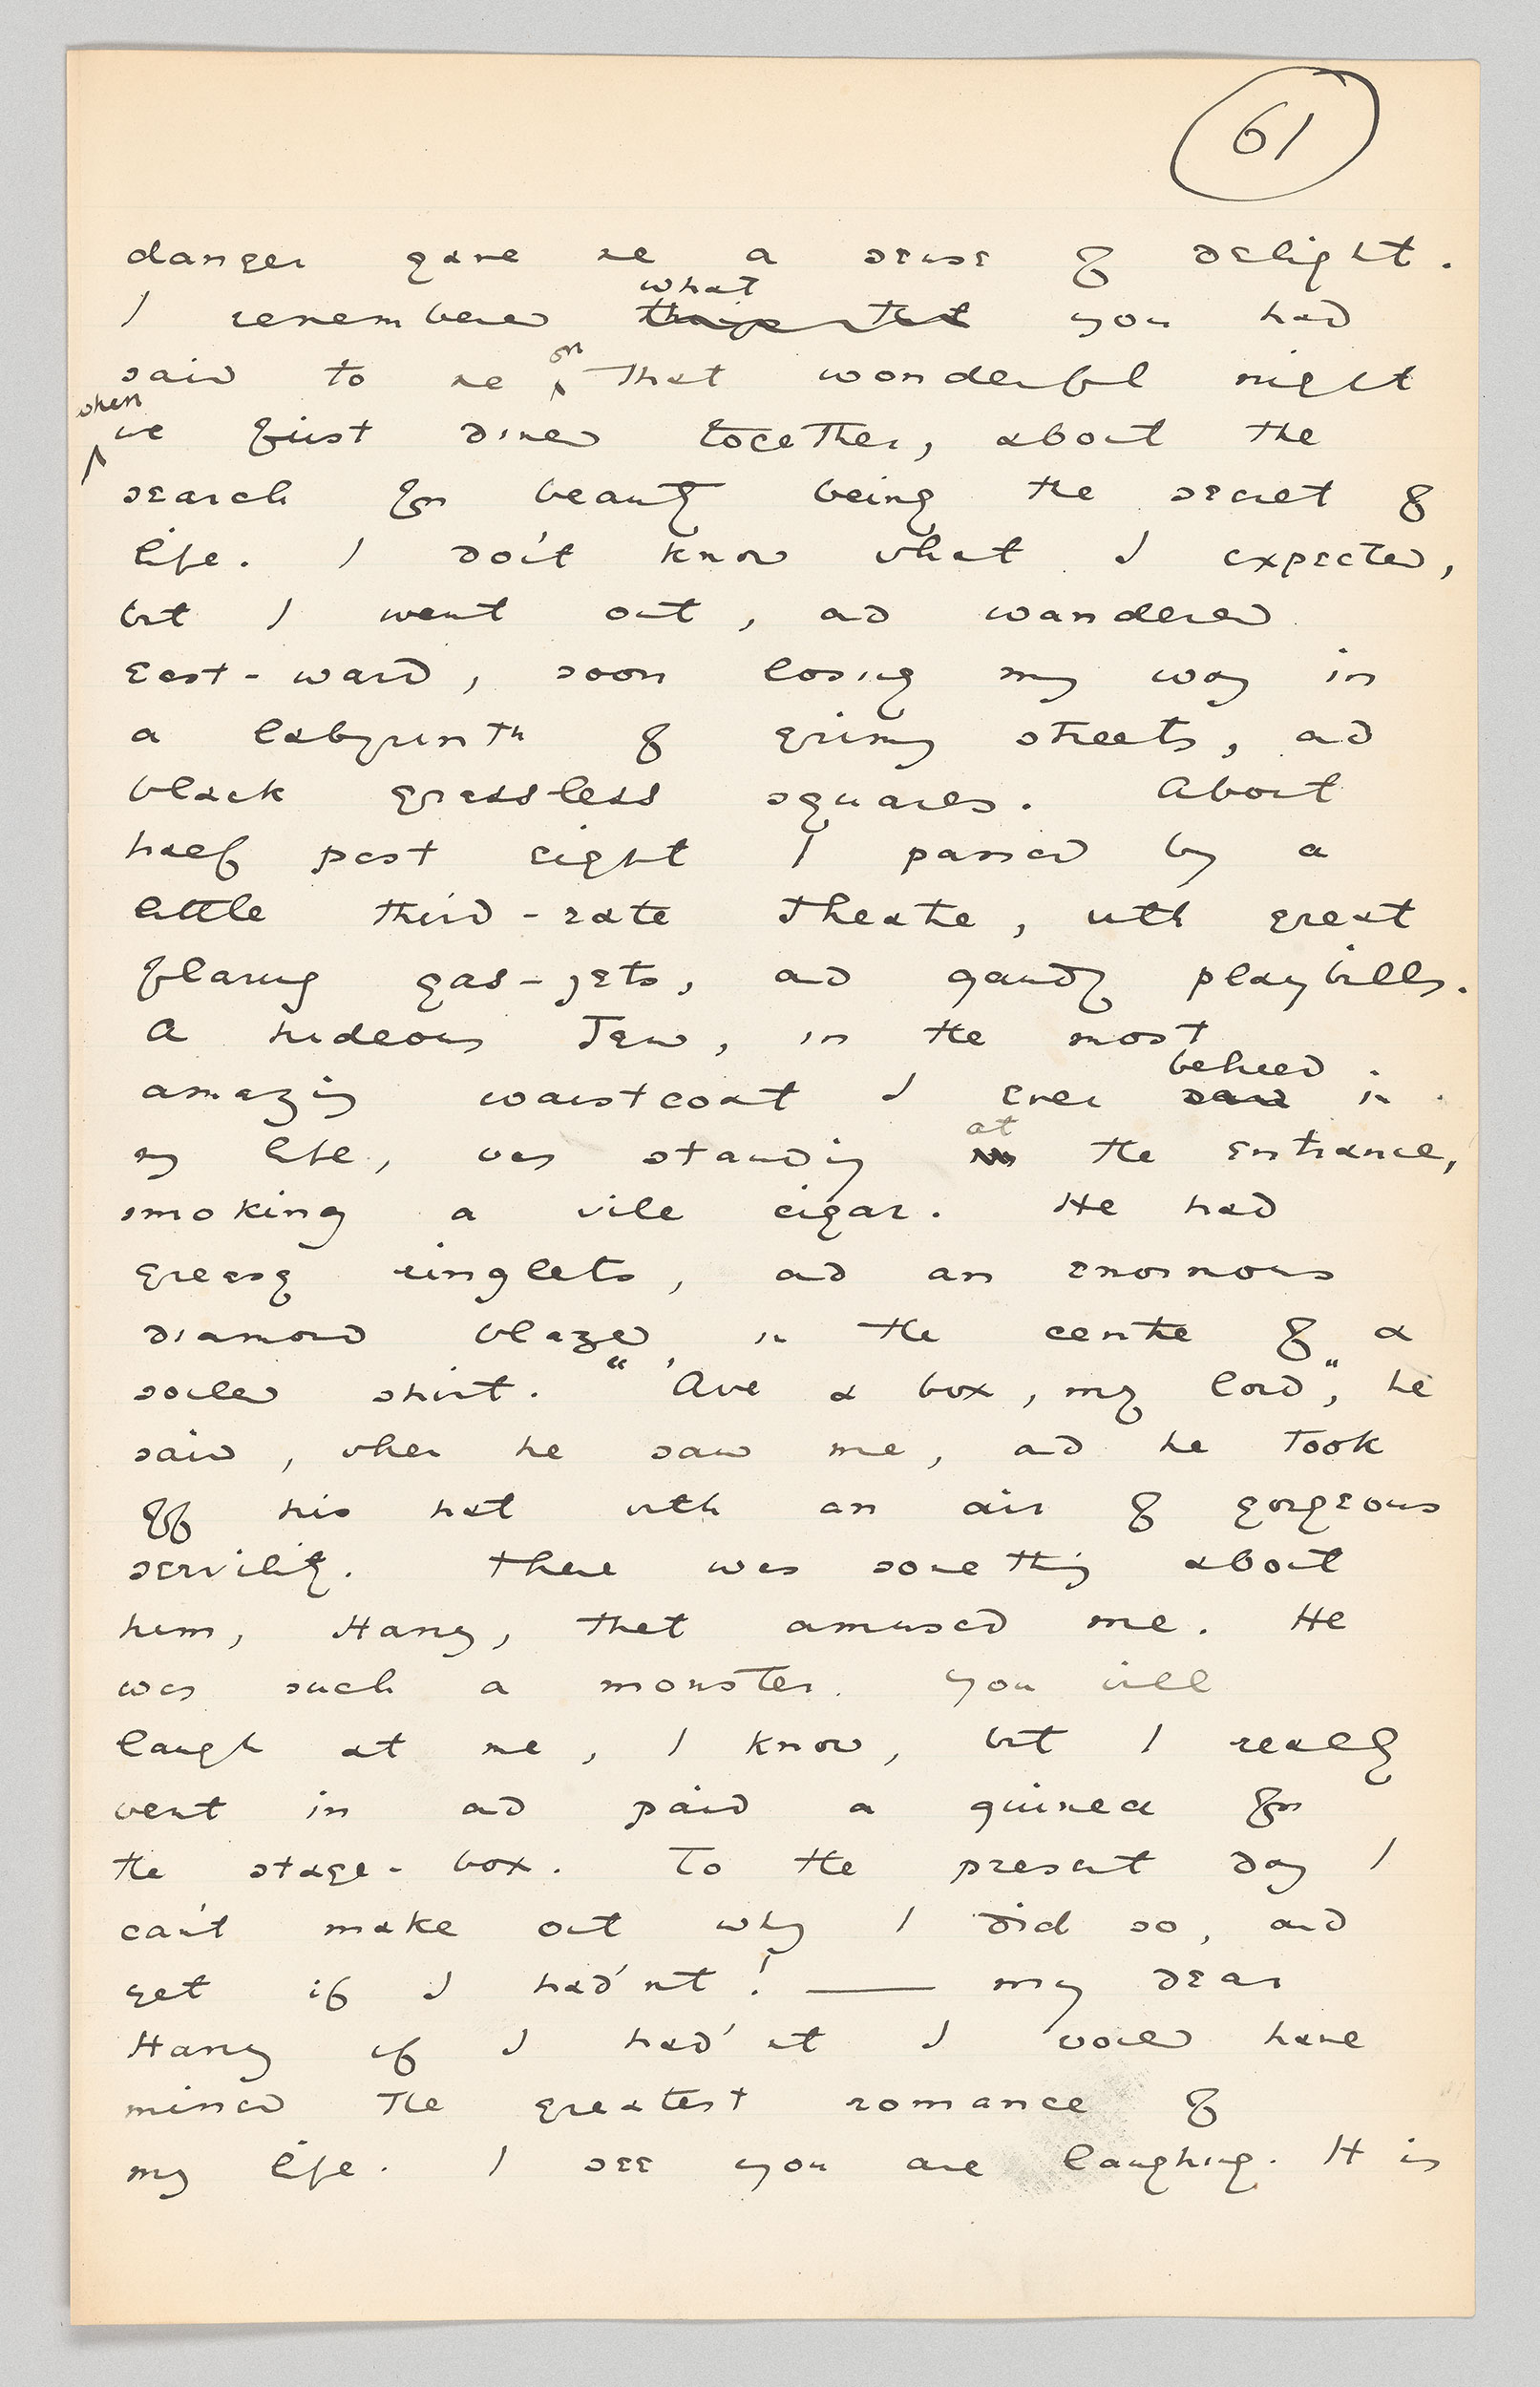 61
danger gave me a sense of delight.
what
I remembered things that you had
on
said to me that wonderful night
when
we first dined together, about the
search for beauty being the secret of
life. I do'nt know what I expected,
but I went out, and wandered
east-ward, soon losing my way in
a labyrinth of grimy streets, and
black grassless squares. About
half past eight I passed by a
little third-rate theatre, with great
flaring gas-jets, and gaudy playbills.
A hideous Jew, in the most
beheld
amazing waistcoat I ever saw in
at
my life, was standing the entrance,
smoking a vile cigar. He had
greasy ringlets, and an enormous
diamond blazed in the centre of a
soiled shirt. "'Ave a box, my lord", he
said, when he saw me, and he took
off his hat with an air of gorgeous
servility. There was something about
him, Harry, that amused me. He
was such a monster. You will
laugh at me, I know, but I really
went in and paid a guinea for
the stage-box. To the present day I
ca'nt make out why I did so, and
yet if I had'nt! — my dear
Harry if I had'nt I would have
missed the greatest romance of
my life. I see you are laughing. It is